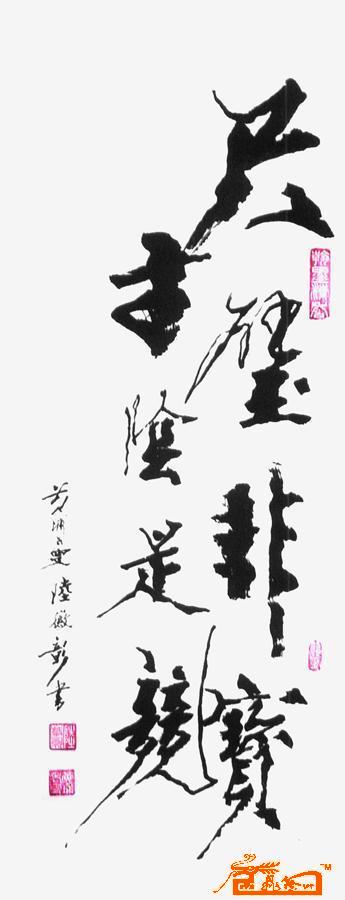 尺璧非寶
寸陰是競
陸 書